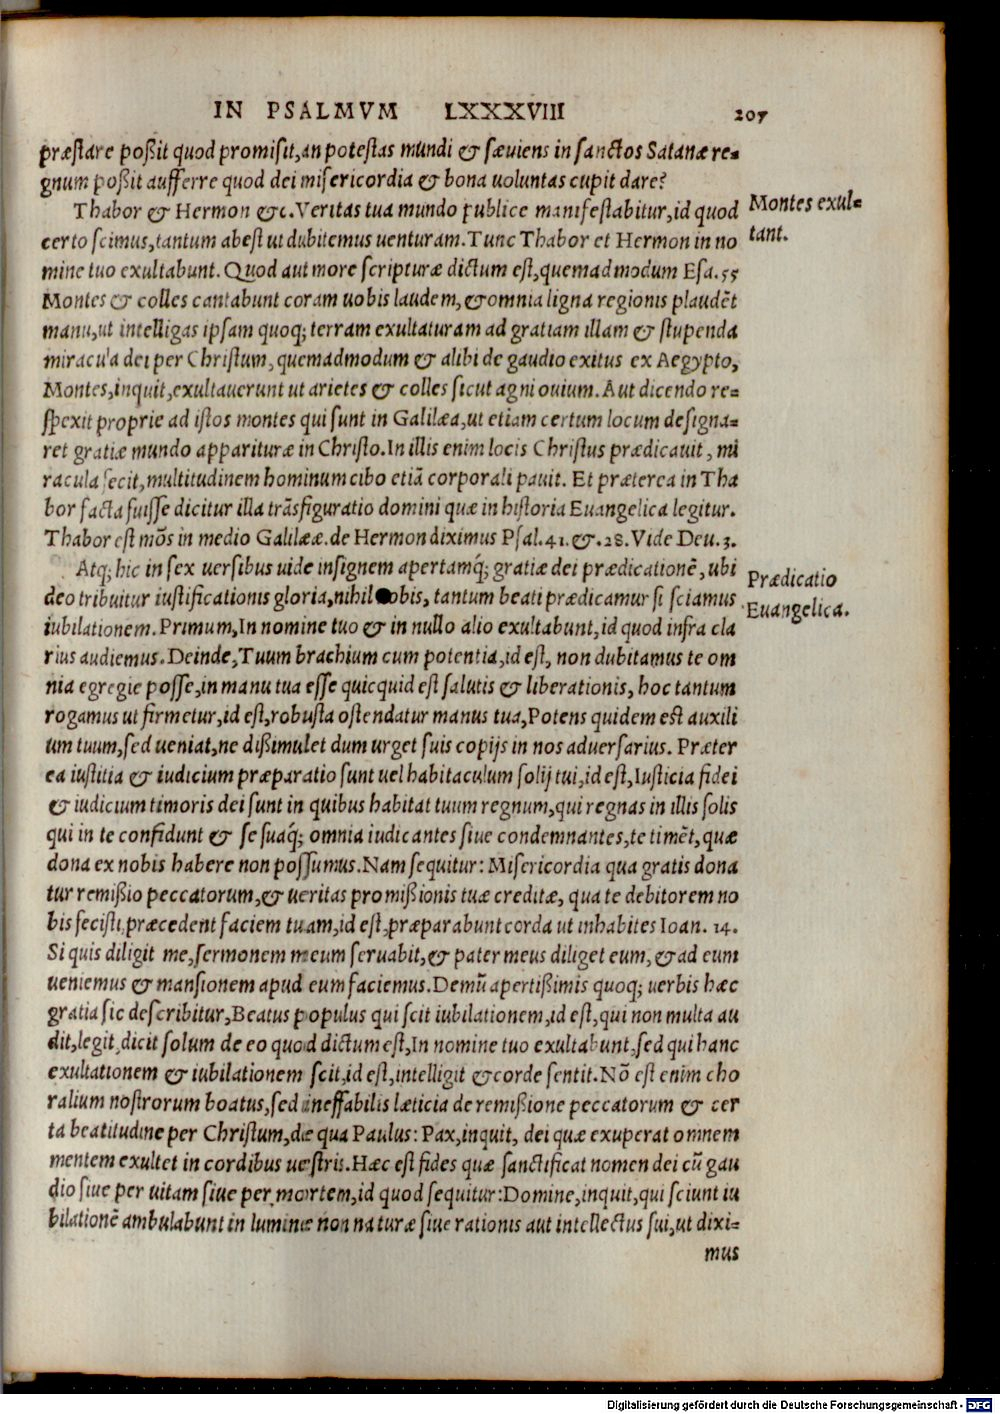 IN PSALMVM LXXXVIII 207
præstare poßit quod promisit, an potestas mundi & sæuiens in sanctos Satanæ re-
gnum poßit aufferre quod dei misericordia & bona uoluntas cupit dare?
Thabor & Hermon &c. Veritas tua mundo publice manifestabitur, id quod
certo scimus, tantum abest ut dubitemus uenturam. Tunc Thabor et Hermon in no
mine tuo exultabunt. Quod aut more scripturæ dictum est, quemadmodum Esa. 55
Montes & colles cantabunt coram uobis laudem, & omnia ligna regionis plaudēt
manu, ut intelligas ipsam quoq; terram exultaturam ad gratiam illam & stupenda
miracula dei per Christum, quemadmodum & alibi de gaudio exitus ex Aegypto,
Montes, inquit, exultauerunt ut arietes & colles sicut agni ouium. Aut dicendo re-
spexit proprie ad istos montes qui sunt in Galilæa, ut etiam certum locum designa-
ret gratiæ mundo apparituræ in Christo. In illis enim locis Christus prædicauit, mi
racula fecit, multitudinem hominum cibo etiā corporali pauit. Et præterea in Tha
bor facta fuisse dicitur illa trāsfiguratio domini quæ in historia Euangelica legitur.
Thabor est mōs in medio Galilææ. de Hermon diximus Psal. 41. &. 28. Vide Deu. 3.
Montes exul-
tant.
Atq; hic in sex uersibus uide insignem apertamq́; gratiæ dei prædicationē, ubi
deo tribuitur iustificationis gloria, nihil obis, tantum beati prædicamur si sciamus
iubilationem. Primum, In nomine tuo & in nullo alio exultabunt, id quod infra cla
rius audiemus. Deinde, Tuum brachium cum potentia, id est, non dubitamus te om
nia egregie posse, in manu tua esse quicquid est salutis & liberationis, hoc tantum
rogamus ut firmetur, id est, robusta ostendatur manus tua, Potens quidem est auxili
um tuum, sed ueniat, ne dißimulet dum urget suis copijs in nos aduersarius. Præter
ea iustitia & iudicium præparatio sunt uel habitaculum solij tui, id est, Iusticia fidei
& iudicium timoris dei sunt in quibus habitat tuum regnum, qui regnas in illis solis
qui in te confidunt & se suaq́; omnia iudicantes siue condemnantes, te timēt, quæ
dona ex nobis habere non possumus. Nam sequitur: Misericordia qua gratis dona
tur remißio peccatorum, & ueritas promißionis tuæ creditæ, qua te debitorem no
bis fecisti, præcedent faciem tuam, id est, præparabunt corda ut inhabites Ioan. 14.
Si quis diligit me, sermonem meum seruabit, & pater meus diliget eum, & ad eum
ueniemus & mansionem apud eum faciemus. Demū apertißimis quoq; uerbis hæc
gratia sic describitur, Beatus populus qui scit iubilationem, id est, qui non multa au
dit, legit, dicit solum de eo quod dictum est, In nomine tuo exultabunt, sed qui hanc
exultationem & iubilationem scit, id est, intelligit & corde sentit. Nō est enim cho
ralium nostrorum boatus, sed ineffabilis læticia de remißione peccatorum & cer
ta beatitudine per Christum, de qua Paulus: Pax, inquit, dei quæ exuperat omnem
mentem exultet in cordibus uestris. Hæc est fides quæ sanctificat nomen dei cū gau
dio siue per uitam siue per mortem, id quod sequitur: Domine, inquit, qui sciunt iu
bilationē ambulabunt in lumine non naturæ siue rationis aut intellectus sui, ut dixi-
mus
Prædicatio
Euangelica.
Digitalisierung gefördert durch die Deutsche Forschungsgemeinschaft - DFG